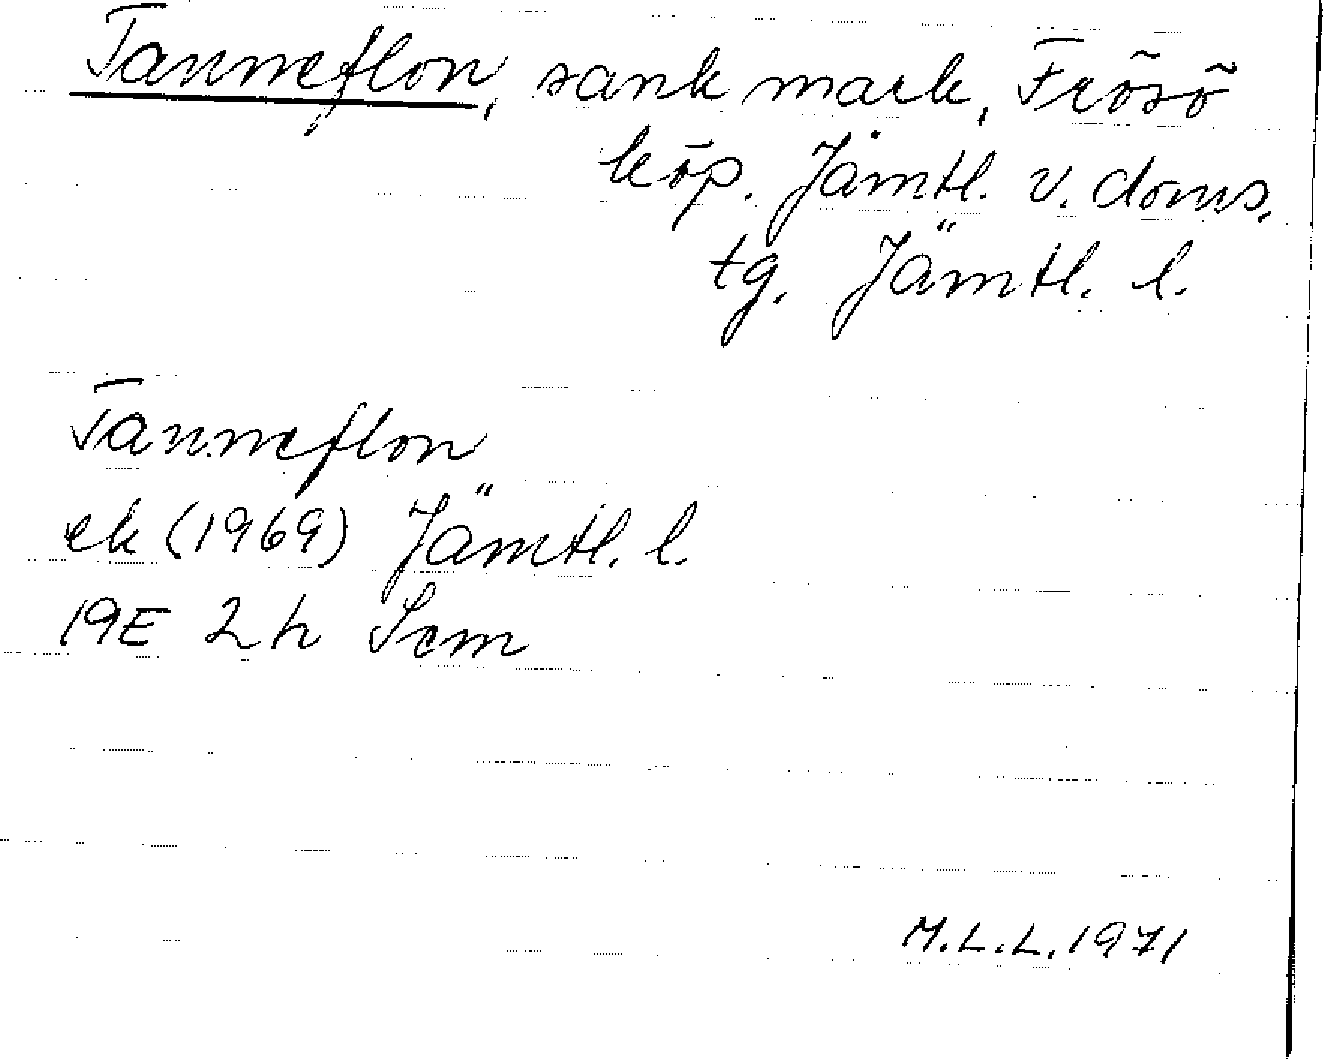 Tanneflon, sank mark, Frösö
köp. Jämtl. v. doms.
tg. Jämtl. l.
Tanneflon
ek (1969) Jämtl. l.
19E 2h Scm
M.L.L. 1971